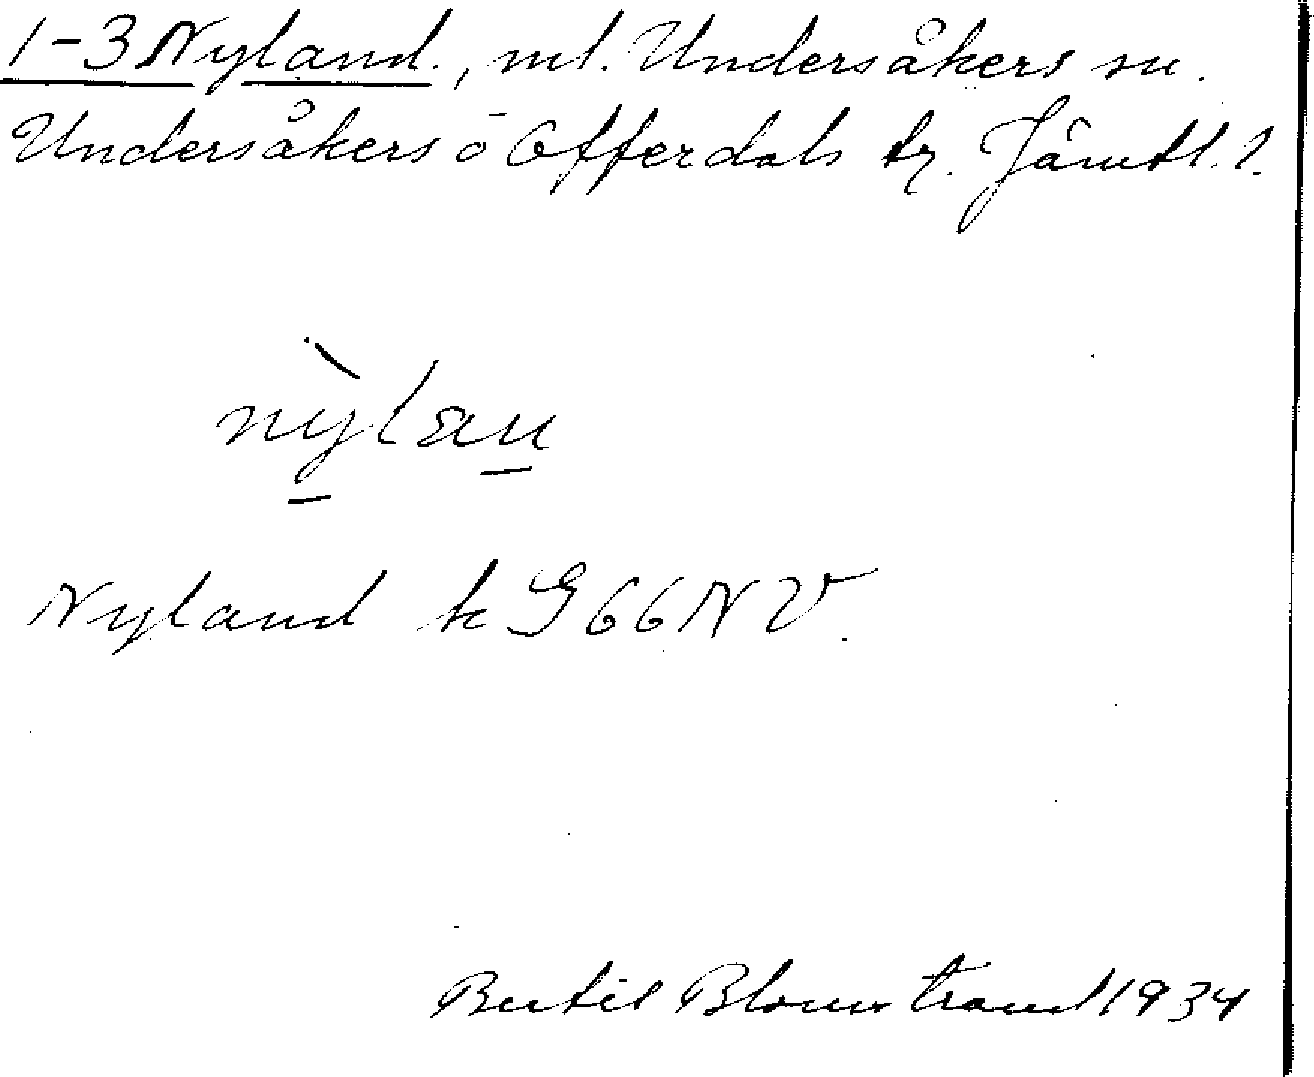 1-3 Nyland., ml. Undersåkers sn.
Undersåkers o Offerdals tg. Jämtl. l.
nỳlan
Nyland k G 66 NV.
Bertil Blomstrand 1934